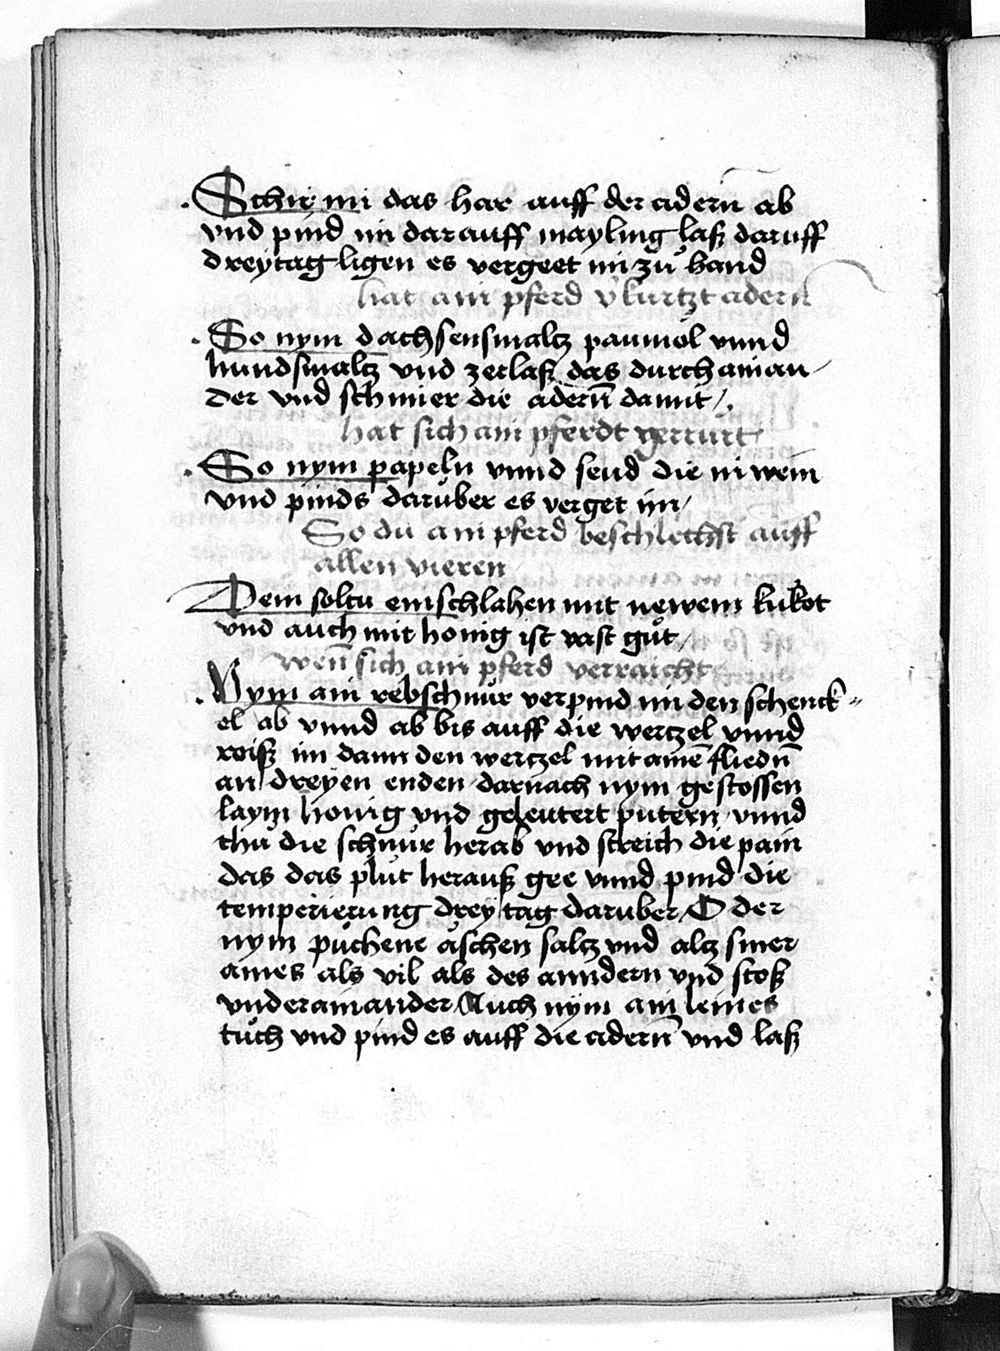 Schir im das har auff der adern̄ ab
vnd pind im darauff mayling laß daruff
dreytag ligen es vergeet im zů hand
hat ain pferd v̓kurtzt adern
So nym dachsensmaltz paumöl vnnd
hundsmaltz vnd zerlaß das durch ainan
der vnd schmier die adern̄ damit /.
hat sich ain pferdt gerrürt
So nym papeln vnnd seud die in wein
vnd pinds darüber es verget im /
So du ain pferd beschlechst auff
allen vieren
Dem soltu einschlahen mit newem kükot
vnd auch mit honig ist vast gůt /
wen̄ sich ain pferd verraicht
Nym ain rebschnür verpind im den schenck=
el ab vnnd ab bis auff die wertzel vnnd
reiß im dann den wertzel mit ainē fliedn̄
an dreyen enden darnach nym gestossen
laym honig vnd geleutert putern vnnd
thů die schnur herab vnd streich die pain
das das plůt herauß gee vnnd pind die
temperierung drey tag daruber / Oder
nym půchene äschen saltz vnd altz smer
aines als vil als des anndern vnd stoß
vnderainander Auch nym ain leines
tůch vnd pind es auff die adern̄ vnd laß